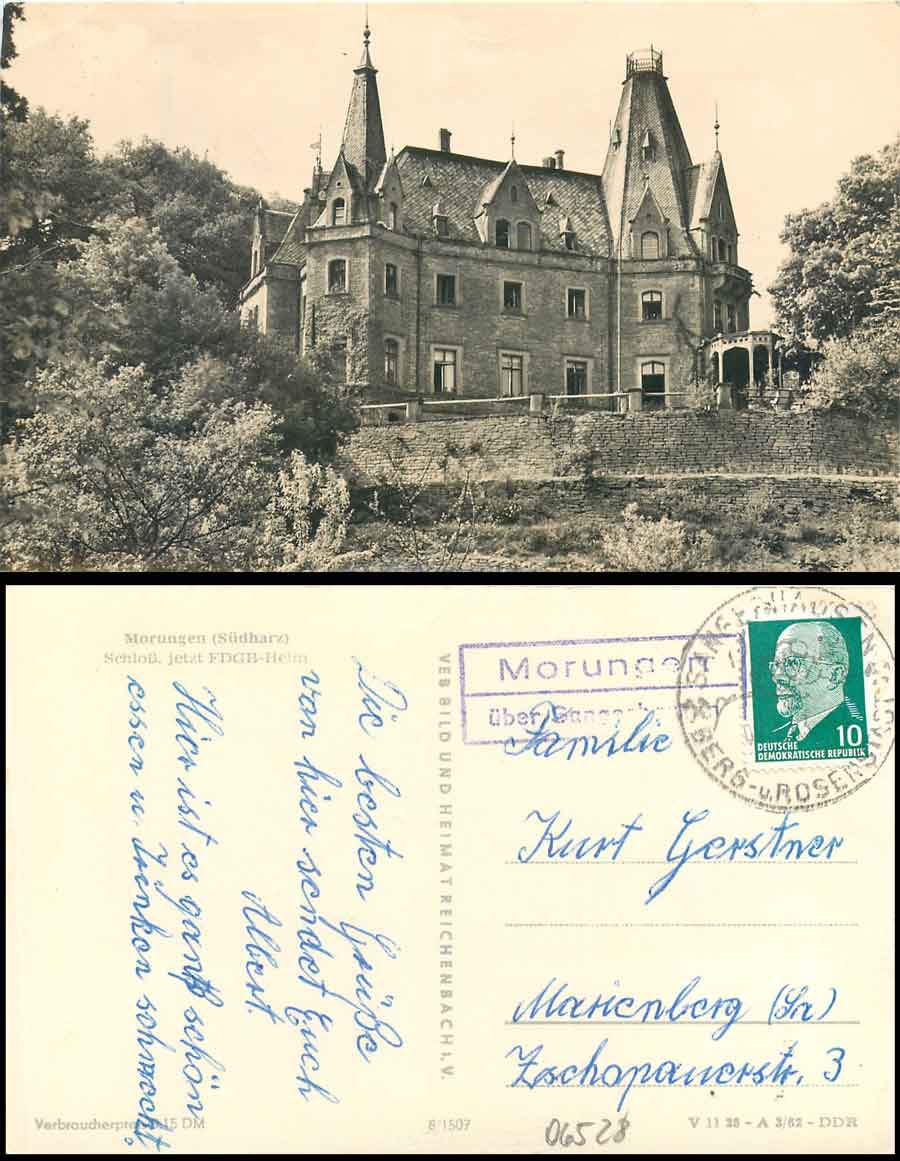 Morungen (Südharz)
Schloß, jetzt FDGB-Heim
Die besten Grüße
von hier sendet Euch
Albert.
Hier ist es ganß schön
essen u. trinken schmeckt.
VEB BILD UND HEIMAT REICHENBACH i. V.
Morungen
über
SANGERHAUSEN
BERG- u. ROSENSTADT
DEUTSCHE
DEMOKRATISCHE REPUBLIK
10
Familie
Kurt Gerstner
Marienberg (Sa)
Zschopauerstr. 3
Verbraucherpreis 15 DM
8/1507
06528
V 11 28 - A 3/62 - DDR